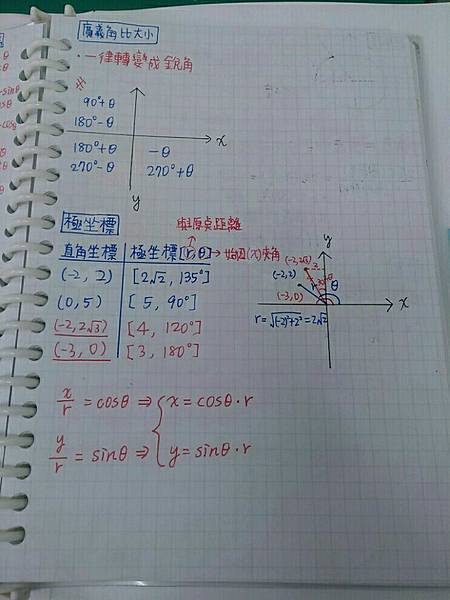 廣義角比大小
・一律轉變成銳角
90°+θ
180°-θ
x
180°+θ
-θ
270°-θ
270°+θ
y
極坐標
與原點距離
直角坐標 極坐標[r,θ]→始邊(x)夾角
(-2, 2) [2√2, 135°]
(0,5) [5, 90°]
(-2,2√3) [4, 120°]
(-3, 0) [3, 180°]
y
(-2,2√3)
(-2,2)
2
θ
(-3,0)
x
r=√(-2)²+2² = 2√2
x/r = cosθ ⇒ { x = cosθ·r
y/r = sinθ ⇒ { y = sinθ·r